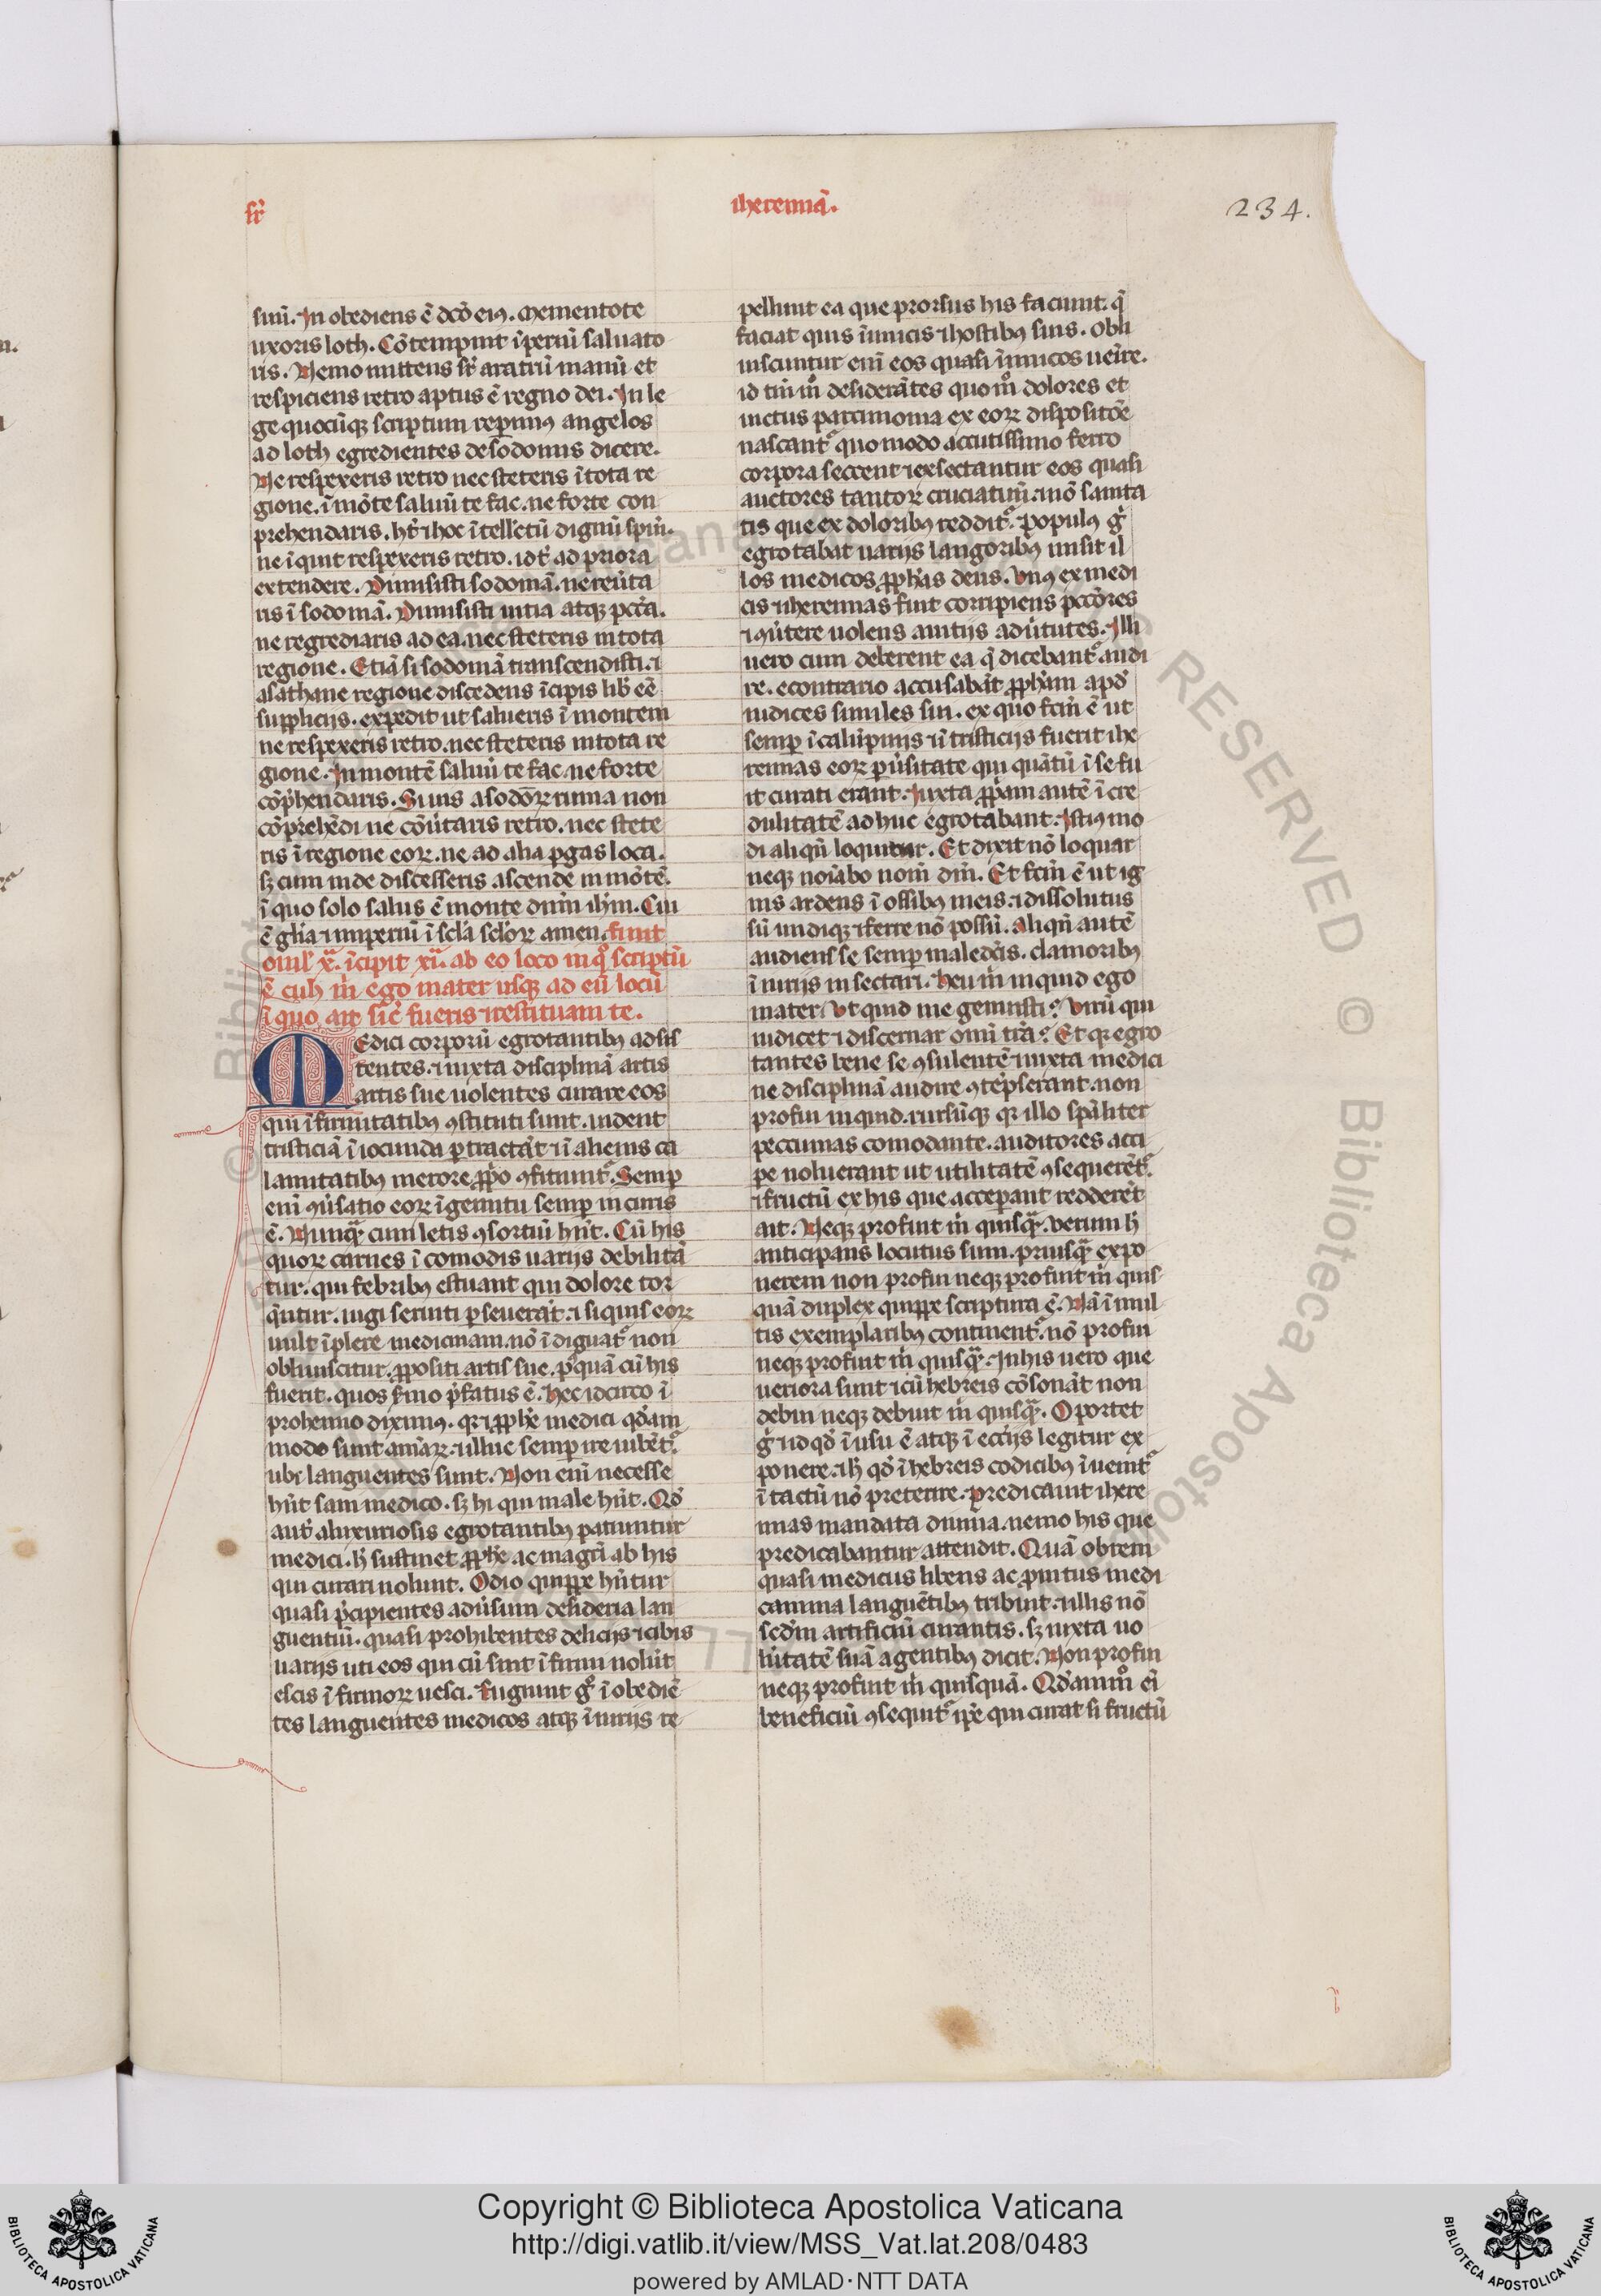 sr̄
iheremiā.
234.
sum. In obediens ē dc̄o eiꝰ. mementote
uxoris loth. Cōtempnit īperiū saluato
ris. Nemo mittens sr̄ aratrū manū et
respiciens retro aptus ē regno dei. In le
ge quocūqꝫ scriptum repimꝰ angelos
ad loth egredientes de sodomis dicere.
Ne respexeris retro nec steteris ī tota re
gione. ī mōte saluū te fac. ne forte con
prehendaris. hꝫ ⁊ hoc ītellectū dignū spū.
ne īquit respexeris retro. ⁊ ad priora
extendere. Dimisisti sodomā. ne reūta
ris ī sodomā. Dimisisti uitia atqꝫ pccā.
ne regrediaris ad ea. nec steteris in tota
regione. Etiā si sodomā transcendisti. ⁊
a sathane regione discedens īcipis lib̄ eē
supplicijs. expedit ut salueris ī montem
ne respexeris retro. nec steteris in tota re
gione. In montē saluū te fac. ne forte
cōp̄hendaris. Si uis a sodōꝝ ruina non
cōprehēdi ne cōūtaris retro. nec stete
ris ī regione eoꝝ. ne ad alia pgas loca.
sꝫ cum inde discesseris ascende in mōtē.
ī quo solo salus ē monte dn̄m ihm̄. Cui
ē gl̄ia ⁊ imperiū ī scl̄a scl̄oꝝ amen. finit
omil' x̄. īcipit xī. ab eo loco in qͦ scriptū
ē euh m̄ ego mater usqꝫ ad eū locū
ī quo ait sic̄ fueris ⁊ restituam te.
Medici corporū egrotantibꝰ adsis
tentes. ⁊ iuxta disciplinā artis
artis sue uolentes curare eos
qui īfirmitatibꝰ ꝯstituti sunt. uident
tristiciā ī iocunda ptractāt ⁊ ī alienis ca
lamitatibꝰ merore ꝓpo ꝯfitiunt᷑. Semp
eni ꝯūsatio eoꝝ ī gemitu semp in curis
ē. Nunqᷓ cum letis ꝯsortiū hn̄t. Cū his
quoꝝ carnes ī comodis uarijs debilitā
tur. qui febribꝰ estuant qui dolore tor
q̄ntur. iugi seruti pseuerāt. ⁊ si quis eoꝝ
uult īplere medicinam. nō īdignat᷑ non
obliuiscitur. ꝓpositi artis sue. pꝰquā cū his
fuerit. quos s̄mo p̄fatus ē. hec idcirco ī
prohemio diximꝰ. qr ⁊ ꝓph̄e medici qd̄am
modo sunt aniāꝝ. ⁊ illuc semp ire iubēt᷑.
ubi languentes sunt. Non eni necesse
hn̄t sani medico. sꝫ hi qui male hn̄t. Qd̄
aut̄ a luxuriosis egrotantibꝰ patiuntur
medici. h̄ sustinet ꝓph̄e ac magr̄i ab his
qui curari nolunt. Odio quippe hn̄tur
quasi p̄cipientes adūsum desideria lan
guentiū. quasi prohibentes delicijs ⁊ cibis
uarijs uti eos qui cū sint īfirmi nolūt
escis ī firmoꝝ uesci. fugiunt gͦ ī obediē
tes languentes medicos atqꝫ īiurijs re
pellunt ea que prorsus his faciunt. q̄
faciat quis īimicis ⁊ hostibꝰ suis. Obli
uiscuntur eni eos quasi īimicos ueīre.
id tm̄ m̄ desiderātes quomͦ dolores et
inctus parcimonia ex eoꝝ dispositōe
nascant᷑ quomodo accutissimo ferro
corpora secent ⁊ exsectantur eos quasi
auctores tantoꝝ cruciatuū. nō sanita
tis que ex doloribꝰ reddit᷑. Populꝰ g̊
egrotabat uarijs langoribꝰ misit il
los medicos ꝓph̄as deus. Vnꝰ ex medi
cis ⁊ iheremias fuit corripiens pccōres
⁊ ꝯūtere uolens a uitijs ad ūtutes. Illi
uero cum deberent ea q̄ dicebant᷑ audi
re. econtrario accusabāt ꝓph̄am apd̄
iudices similes sui. ex quo fcm̄ ē ut
semp ī calūpnijs ⁊ ī tristicijs fuerit ihe
remias eoꝝ pūsitate qui quātū ī se fu
it curati erant. Iuxta ꝓpam autē ī cre
dulitatē ad huc egrotabant. Istiꝰmo
di aliqn̄ loquitur. Et dixit nō loquar
neqꝫ noīabo nom̄ dm̄. Et fcm̄ ē ut ig
nis ardens ī ossibꝰ meis. ⁊ dissolutus
sū undiqꝫ ⁊ ferre nō possū. Aliqn̄ autē
audiens se semp maledc̄is. clamoribꝰ
īiurijs insectari. heu m̄ inquid ego
mater. Vt quid me genuisti? Virū qui
iudicet ⁊ discernat omi tr̄a? Et qr egro
tantes bene se ꝯsulentē iuxta medici
ne disciplinā audire ꝯtēpserant. non
profui inquid. rursūqꝫ qr illo spāliter
peccunias comodante. auditores acci
pe noluerant ut utilitatē ꝯsequerēt᷑.
⁊ fructū ex his que acceperant redderēt
ait. Neqꝫ profuit m̄ quisqᷓ. Verum h̄
anticipans locutus sum. priusqᷓ expo
nerem non profui neqꝫ profuit m̄ quis
quā duplex quippe scriptura ē. Nā ī mul
tis exemplaribꝰ continent᷑. nō profui
neqꝫ profuit m̄ quisqᷓ. In his uero que
ueriora sunt ⁊ cū hebreis cōsonāt non
debui neqꝫ debuit m̄ quisqᷓ. Oportet
g̊ ⁊ id qd̄ ī usu ē atqꝫ ī ecc̄ijs legitur ex
ponere. ⁊ h̄ qd̄ ī hebreis codicibꝰ īuenit᷑
ītactū nō preterire. Predicauit ihere
mias mandata diuina. nemo his que
predicabantur attendit. Quā obrem
quasi medicus libens ac pmitus medi
camina languētibꝰ tribuit. ⁊ illis nō
scd̄m artificiū curantis. sꝫ iuxta uo
lūtatē suā agentibꝰ dicit. Non profui
neqꝫ profuit m̄ quisquā. Qd̄ammͦ ei
beneficiū ꝯsequit᷑ ip̄e qui curat si fructū
Copyright © Biblioteca Apostolica Vaticana
http://digi.vatlib.it/view/MSS_Vat.lat.208/0483
powered by AMLAD·NTT DATA